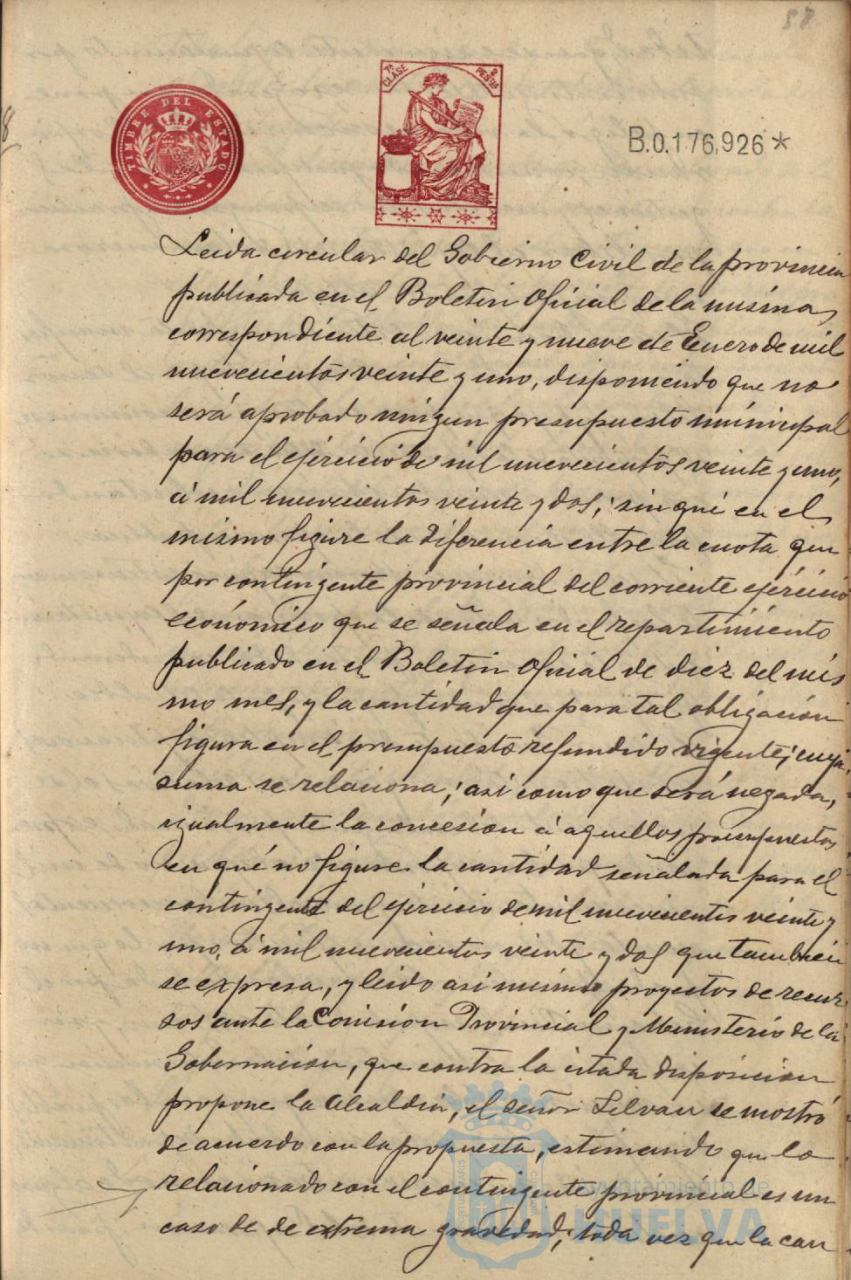 58
TIMBRE DEL ESTADO
7ª CLASE 2 PESETAS
B.0.176,926*
Leida circular del Gobierno Civil de la provincia
publicada en el Boletin Oficial de la misma,
correspondiente al veinte y nueve de Enero de mil
nuevecientos veinte y uno, disponiendo que no
será aprobado ningun presupuesto municipal
para el ejercicio de mil nuevecientos veinte y uno,
á mil nuevecientos veinte y dos, sin qué en el
mismo figure la diferencia entre la cuota que
por contingente provincial del corriente ejercicio
económico que se señala en el repartimiento
publicado en el Boletin Oficial de diez del mis
mo mes, y la cantidad que para tal obligación
figura en el presupuesto refundido vigente; cuya
suma se relaciona; asi como que será negada,
igualmente la concesion á aquellos presupuestos
en qué no figure la cantidad señalada para el
contingente del ejercicio de mil nuevecientos veinte y
uno, á mil nuevecientos veinte y dos que tambien
se expresa, y leido asi mismo proyectos de recur
sos ante la Comisión Provincial y Ministerio de la
Gobernación, que contra la citada disposicion
propone la Alcaldia, el señor Selvan se mostró
de acuerdo con la propuesta, estimando que lo
relacionado con el contingente provincial es un
caso de de extrema gravedad, toda vez que la can
Ayuntamiento de
HUELVA